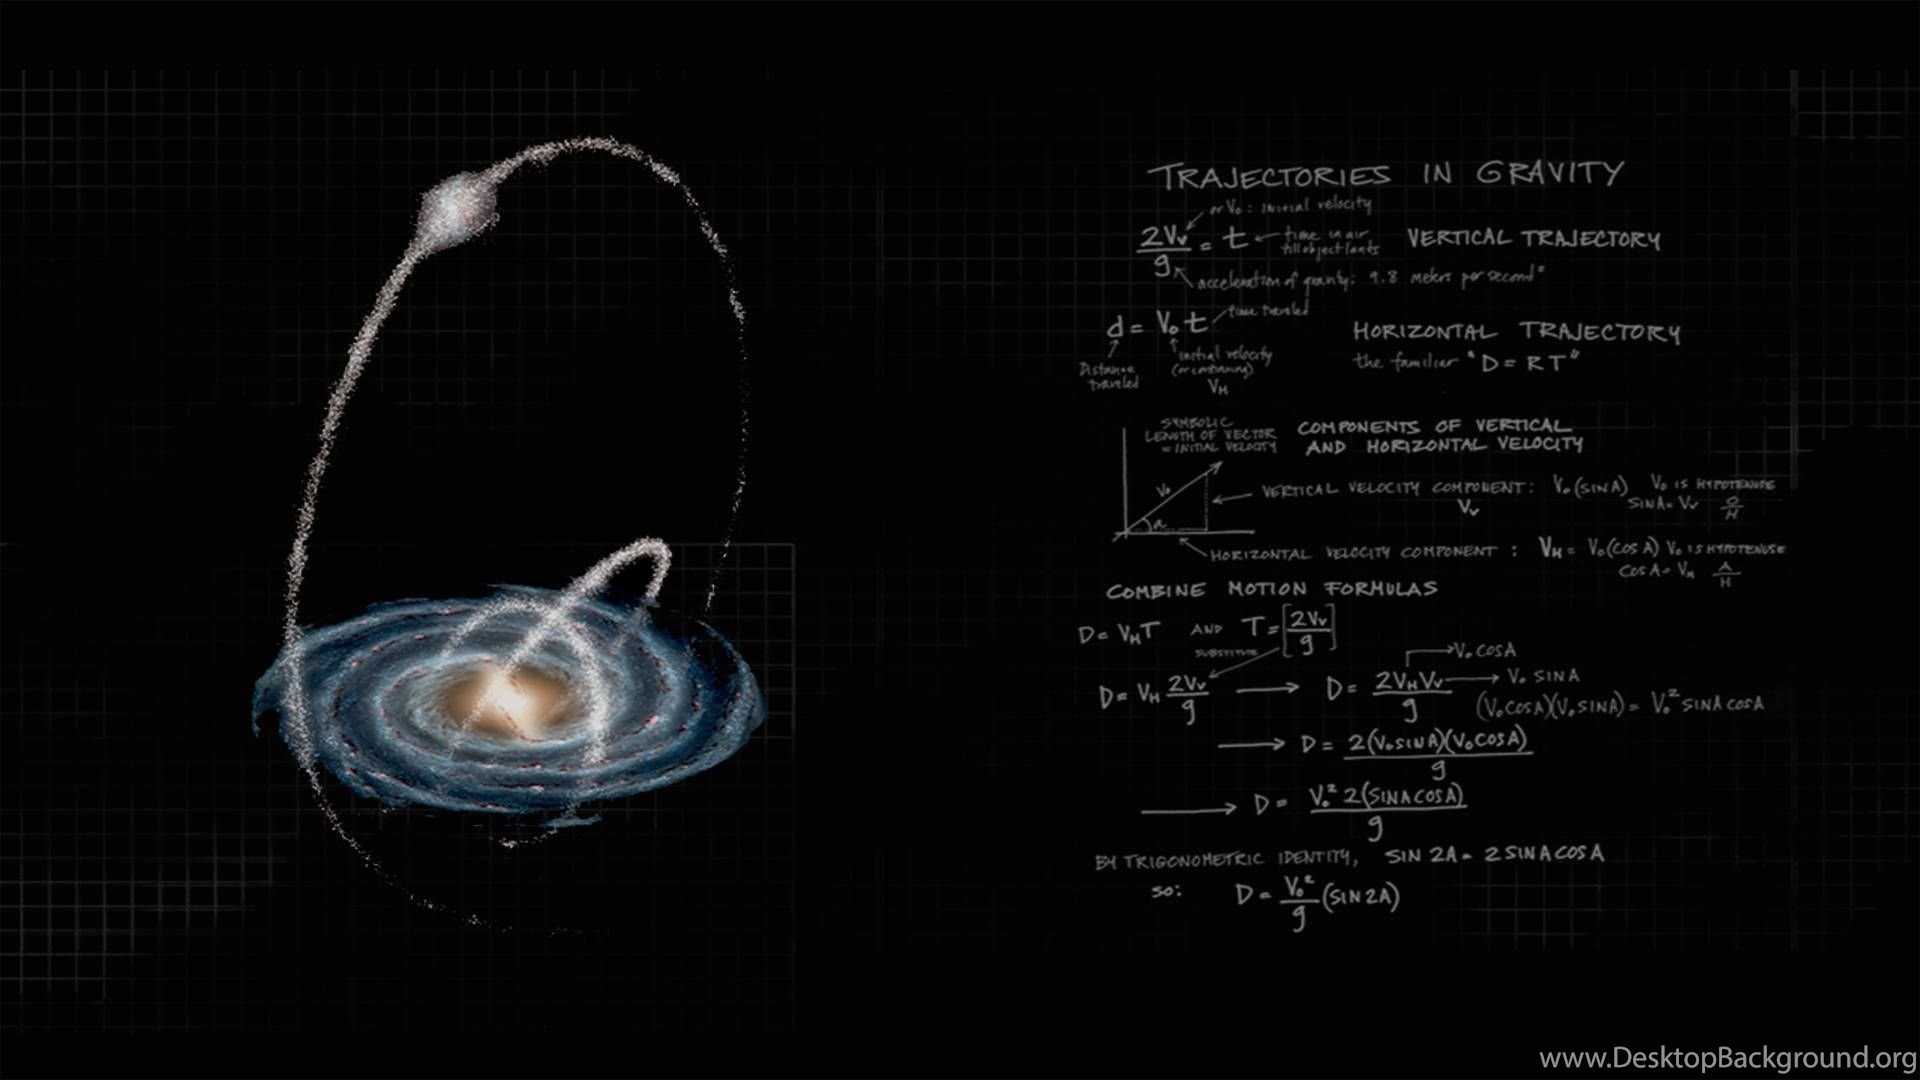 TRAJECTORIES IN GRAVITY
or V₀ : initial velocity
2Vv / g = t
time in air
till object lands
VERTICAL TRAJECTORY
acceleration of gravity: 9.8 meters per second²
d = V₀ t
time traveled
HORIZONTAL TRAJECTORY
the familiar "D = RT"
Distance
traveled
initial velocity
VH
SYMBOLIC
LENGTH OF VECTOR
= INITIAL VELOCITY
COMPONENTS OF VERTICAL
AND HORIZONTAL VELOCITY
V₀
a
VERTICAL VELOCITY COMPONENT: V₀(SINA) V₀ IS HYPOTENUSE
Vv
SINA = Vv O/H
HORIZONTAL VELOCITY COMPONENT : VH = V₀(COSA) V₀ IS HYPOTENUSE
COSA = VH A/H
COMBINE MOTION FORMULAS
D = VHT AND T = [2Vv / g]
SUBSTITUTE
D = VH 2Vv / g → D = 2VHVv / g
→ V₀ COSA
→ V₀ SINA
(V₀COSA)(V₀SINA) = V₀² SINACOSA
→ D = 2(V₀SINA)(V₀COSA) / g
→ D = V₀² 2(SINACOSA) / g
BY TRIGONOMETRIC IDENTITY, SIN 2A = 2SINACOSA
SO: D = V₀² / g (SIN2A)
www.DesktopBackground.org